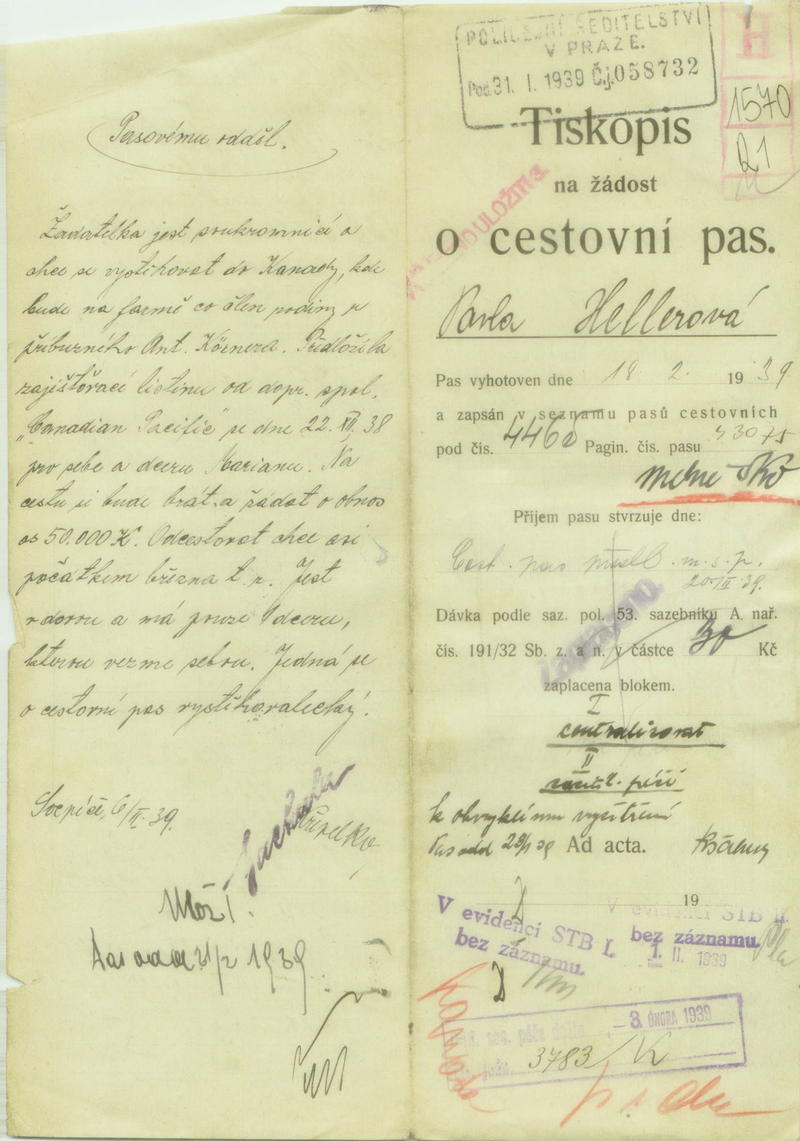 Pasovému odděl.
Žadatelka jest soukromnicí a
chce se vystěhovat do Kanady, kde
bude na farmě co člen rodiny u
příbuzného Ant. Körnera. Předložila
zajišťovací listinu od dopr. spol.
„Canadian Pacific" ze dne 22. XII. 38
pro sebe a dceru Marianu. Na
cestu si bude brát a žádat o obnos
as 50.000 K. Odcestovat chce asi
počátkem března t. r. Jest
vdovou a má pouze 1 dceru,
kterou vezme sebou. Jedná se
o cestovní pas vystěhovalecký.
6/II. 39.
Může
1939
POLICEJNÍ ŘEDITELSTVÍ
V PRAZE.
Pod. 31. I. 1939 Č.j. 058732
H
1570
Tiskopis
na žádost
o cestovní pas.
Pavla Hellerová
Pas vyhotoven dne 18 2. 19 39
a zapsán v seznamu pasů cestovních
pod čís. 4460 Pagin. čís. pasu
Příjem pasu stvrzuje dne:
Cest. pas
Dávka podle saz. pol. 53. sazebníku A. nař.
čís. 191/32 Sb. z. a n. v částce 30 Kč
zaplacena blokem.
I
centralisovat
II
k obvyklému vyšetření
Ad acta.
19
V evidenci STB I.
bez záznamu.
V evidenci STB II.
bez záznamu.
1. II. 1939
3. ÚNORA 1939
3783/K